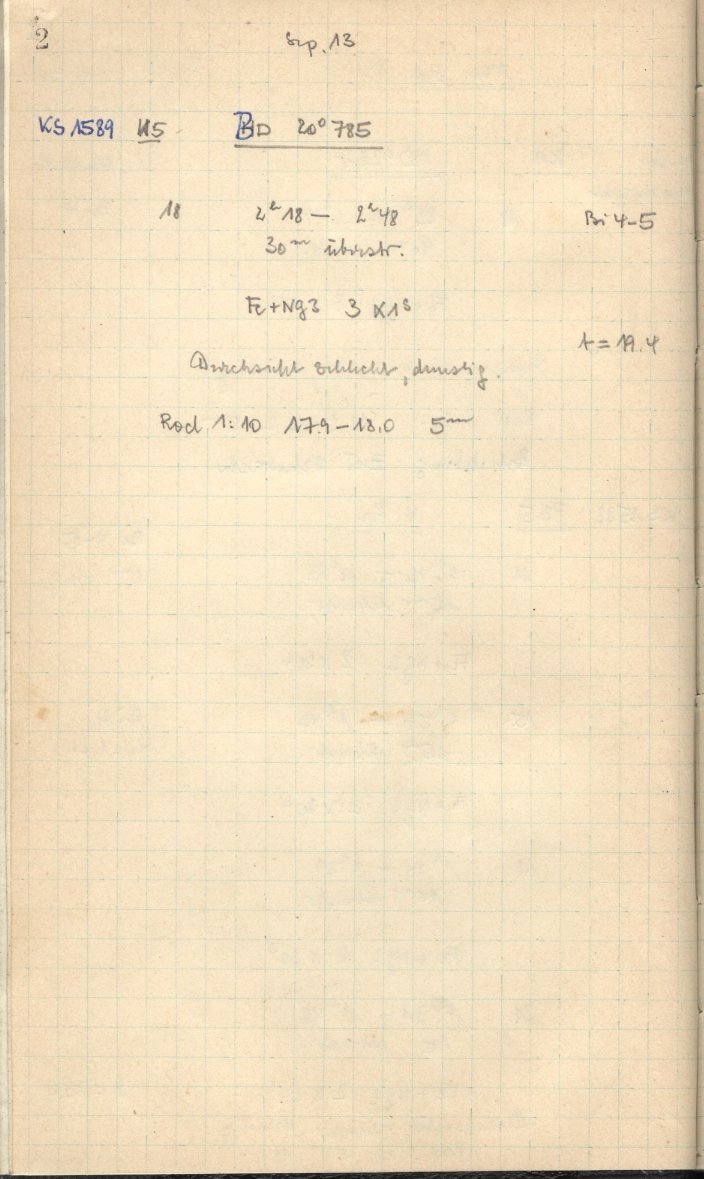 2
Sep. 13
KS 1589 U5 BD 20° 785
18 2ʰ18 — 2ʰ48 Bi 4-5
30ᵐ überstr.
Fe+Ng3 3 x 1ˢ
t = 19.4
Durchsicht schlecht, dunstig.
Rod 1:10 17.9 – 18.0 5ᵐ